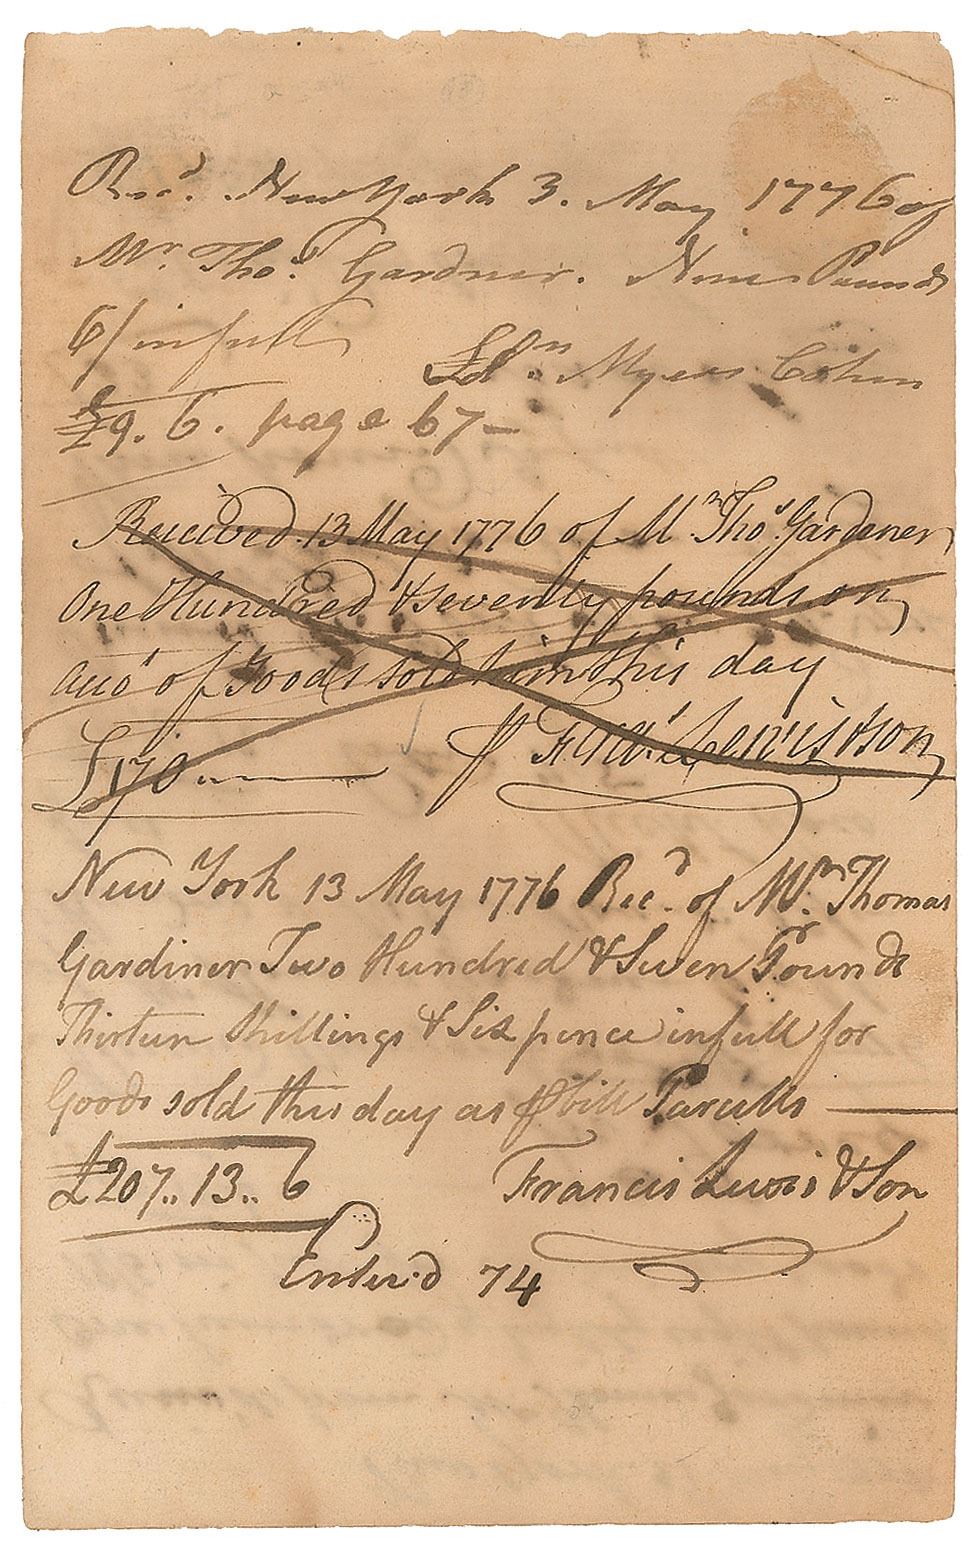 Recd. New York 3. May 1776 of
Mr. Thos. Gardner. Nine Pounds
6/ in full
Myers Cohen
£9. 6. page 67-
Received 13 May 1776 of Mr. Thos. Gardener
One Hundred & seventy pounds on
acco of Goods sold him this day
£170 Fras. Lewis & son
New York 13 May 1776 Recd. of Mr. Thomas
Gardiner Two Hundred & Seven Pounds
Thirteen Shillings & Six pence in full for
Goods sold this day as ⅌ bill Parcells
£207.. 13.. 6 Francis Lewis & Son
Enter'd 74